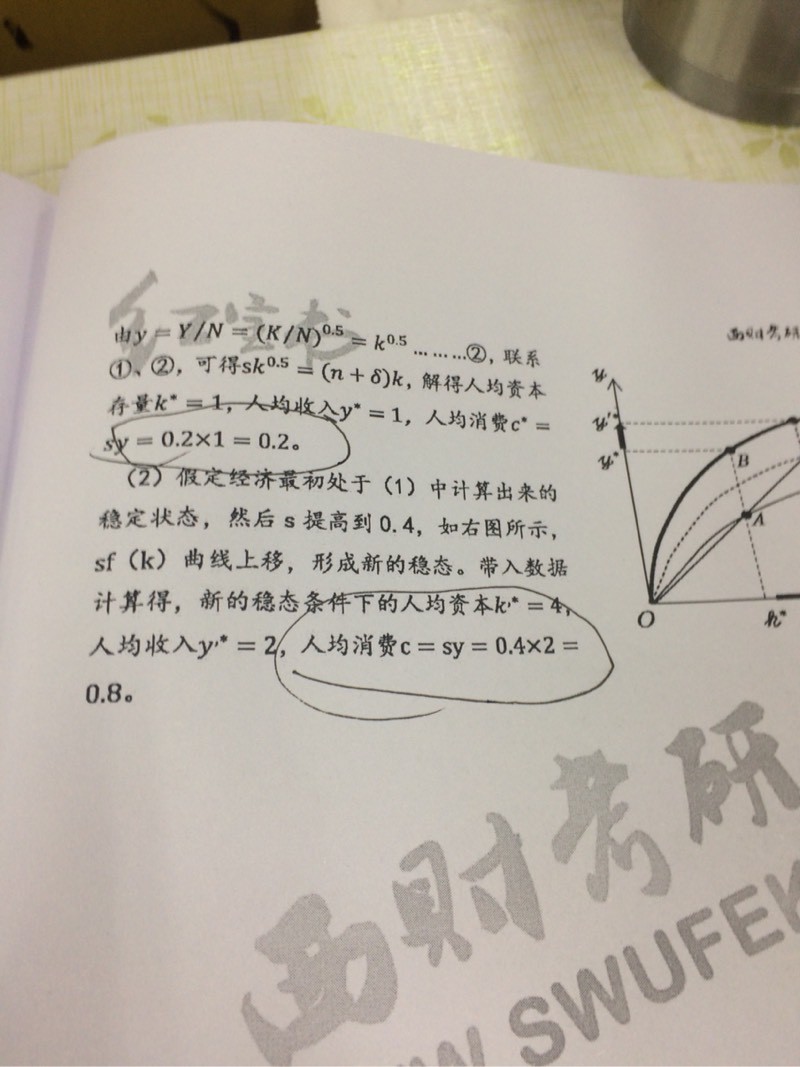 红宝书
由y = Y/N = (K/N)^0.5 = k^0.5 ………②, 联系
①、②, 可得sk^0.5 = (n + δ)k, 解得人均资本
存量k* = 1, 人均收入y* = 1, 人均消费c* =
sy = 0.2×1 = 0.2。
(2) 假定经济最初处于 (1) 中计算出来的
稳定状态, 然后 s 提高到 0.4, 如右图所示,
sf (k) 曲线上移, 形成新的稳态。带入数据
计算得, 新的稳态条件下的人均资本k'* = 4,
人均收入y'* = 2, 人均消费c = sy = 0.4×2 =
0.8。
西财考研
y
y'*
y*
B
A
O
k*
西财考研
SWUFEK